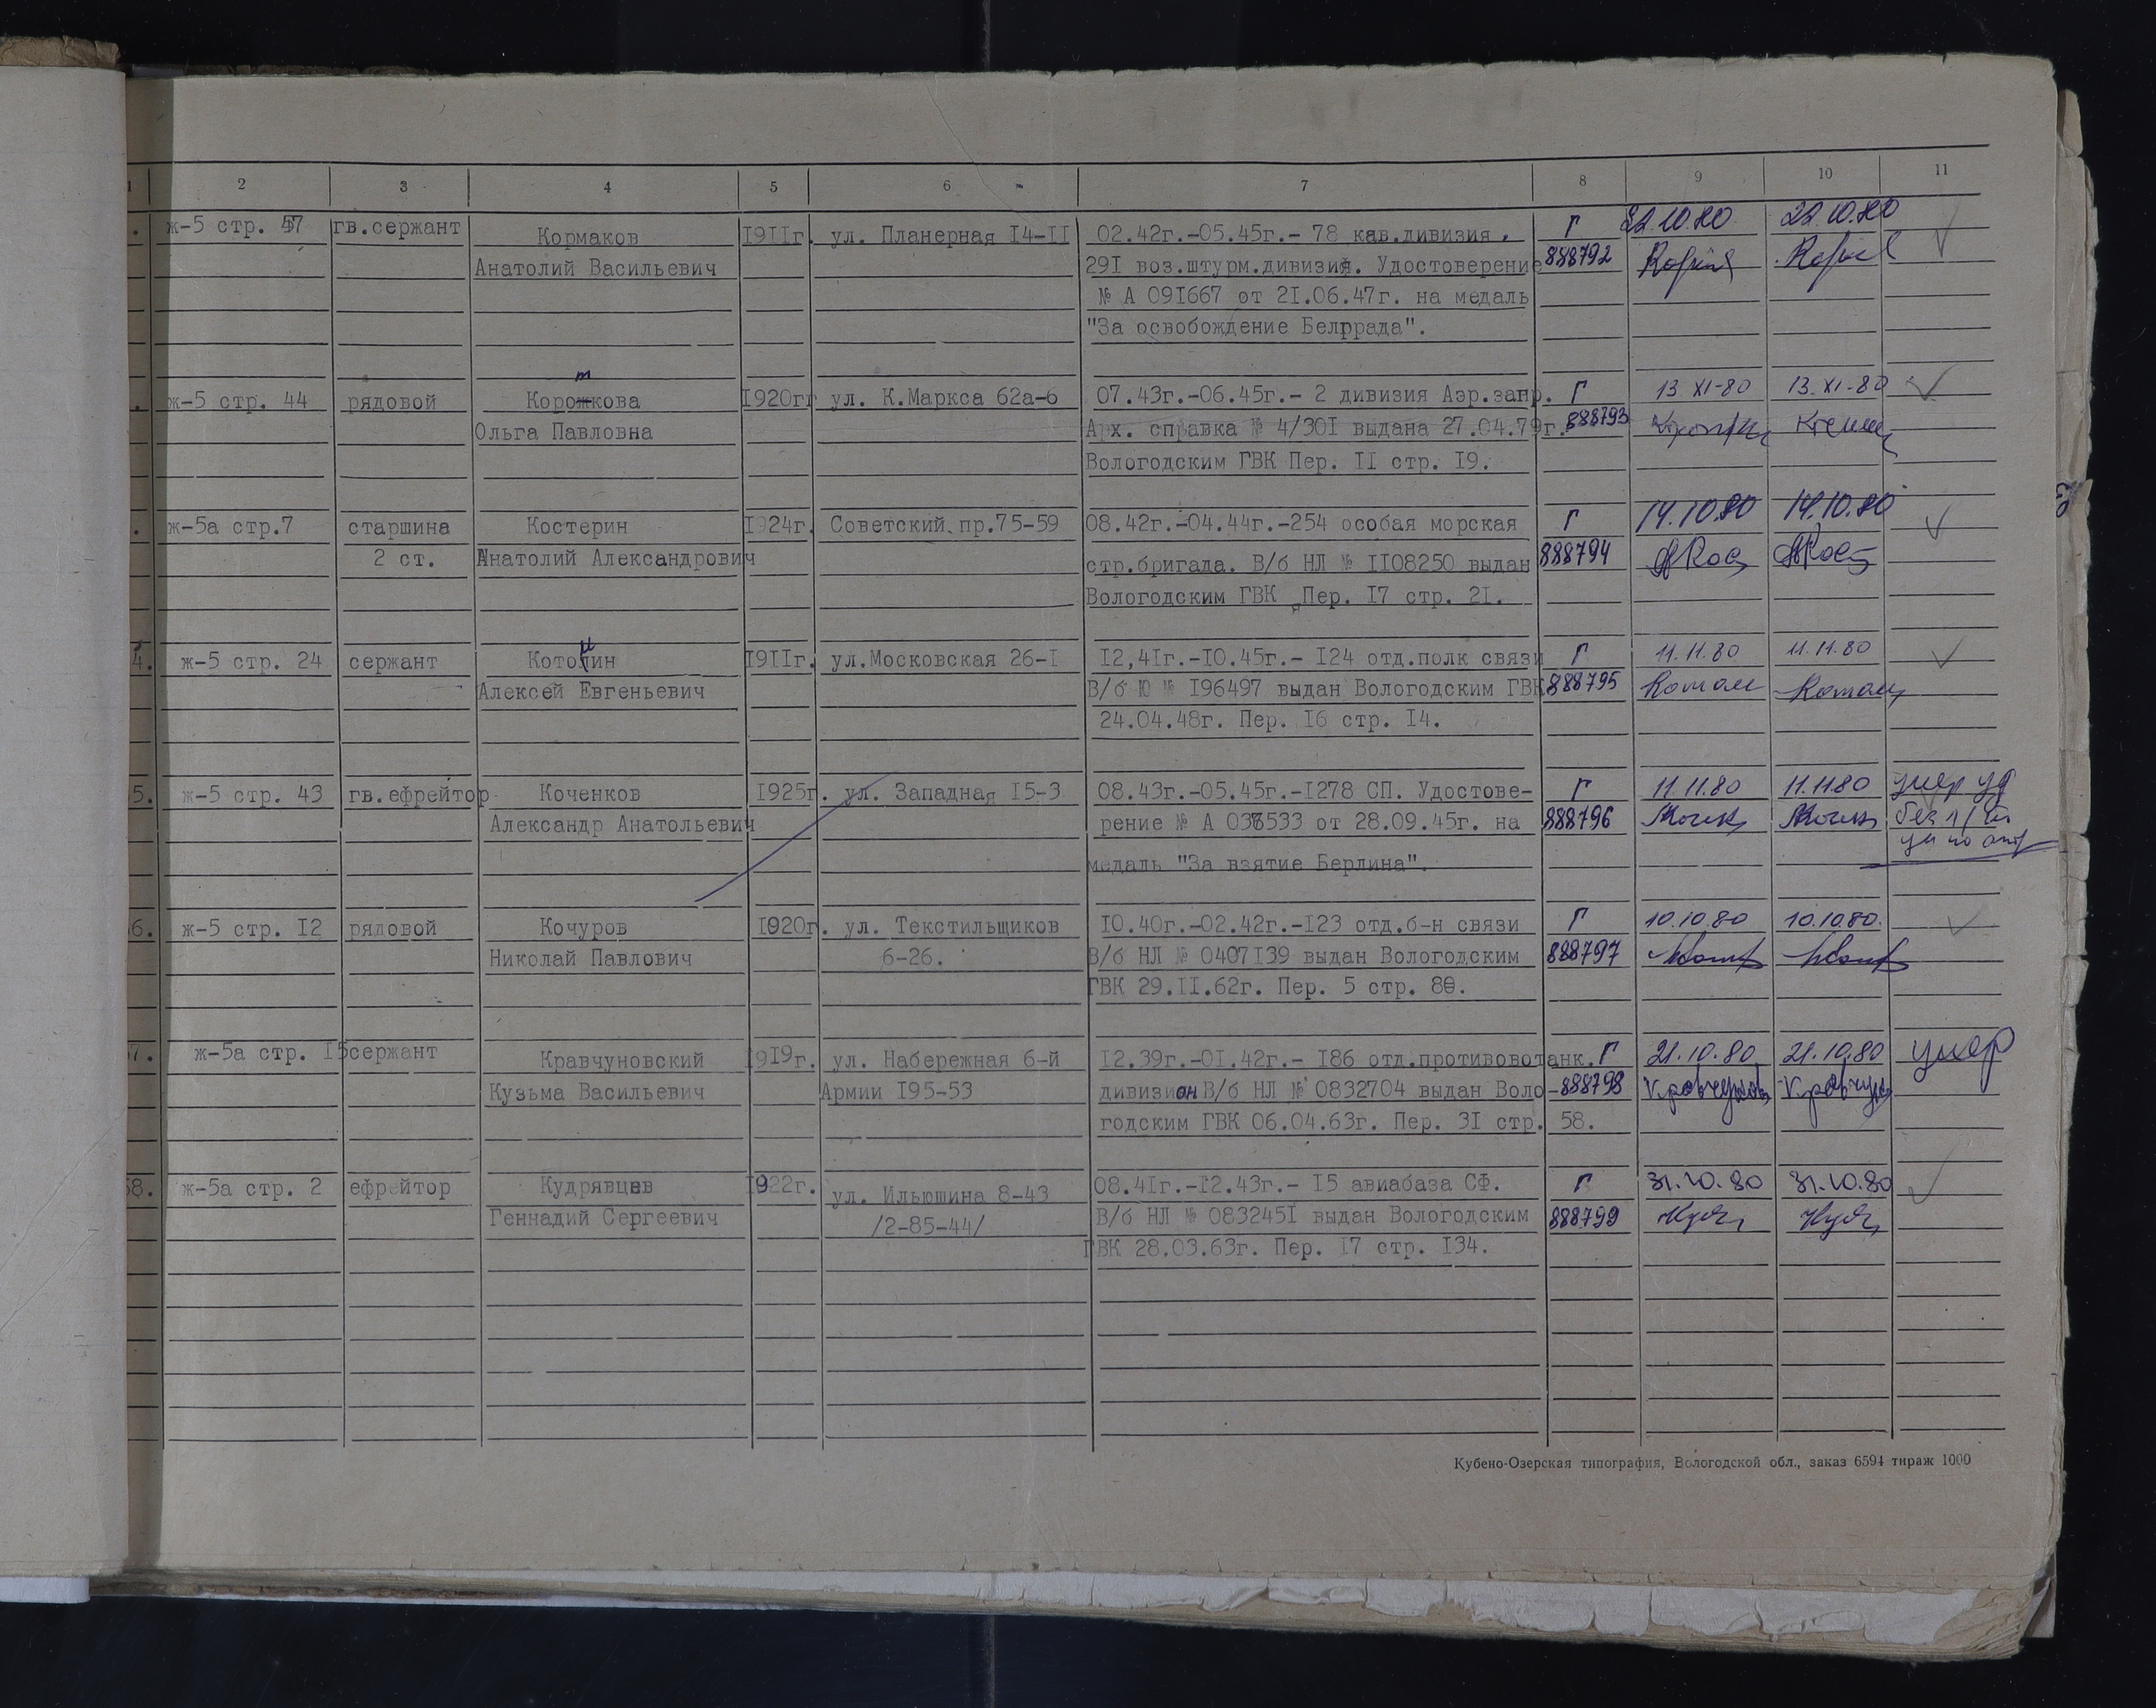 1 2 3 4 5 6 7 8 9 10 11
ж-5 стр. 57 гв.сержант Кормаков 1911г. ул. Планерная 14-11 02.42г.-05.45г.- 78 кав.дивизия, Г 22.10.80 22.10.80
Анатолий Васильевич 291 воз.штурм.дивизия. Удостоверение 888792
№ А 091667 от 21.06.47г. на медаль
"За освобождение Белграда".
т
ж-5 стр. 44 рядовой Корожкова 1920гг ул. К.Маркса 62а-6 07.43г.-06.45г.- 2 дивизия Аэр.загр. Г 13.XI-80 13.XI-80
Ольга Павловна Арх. справка № 4/301 выдана 27.04.79г. 888793
Вологодским ГВК Пер. 11 стр. 19.
ж-5а стр.7 старшина Костерин 1924г. Советский пр.75-59 08.42г.-04.44г.-254 особая морская Г 14.10.80 14.10.80
2 ст. Анатолий Александрович стр.бригада. В/б НЛ № 1108250 выдан 888794
Вологодским ГВК Пер. 17 стр. 21.
4. ж-5 стр. 24 сержант 1911г. ул.Московская 26-1 12,41г.-10.45г.- 124 отд.полк связи Г 11.11.80 11.11.80
Алексей Евгеньевич В/б Ю № 196497 выдан Вологодским ГВК 888795
24.04.48г. Пер. 16 стр. 14.
5. ж-5 стр. 43 гв.ефрейтор Коченков 1925г. ул. Западная 15-3 08.43г.-05.45г.-1278 СП. Удостове- Г 11.11.80 11.11.80 умер уд
Александр Анатольевич рение № А 038533 от 28.09.45г. на 888796
медаль "За взятие Берлина".
6. ж-5 стр. 12 рядовой Кочуров 1920г. ул. Текстильщиков 10.40г.-02.42г.-123 отд.б-н связи Г 10.10.80 10.10.80.
Николай Павлович 6-26. В/б НЛ № 0407139 выдан Вологодским 888797
ГВК 29.11.62г. Пер. 5 стр. 80.
7. ж-5а стр. 15 сержант Кравчуновский 1919г. ул. Набережная 6-й 12.39г.-01.42г.- 186 отд.противовотанк. Г 21.10.80 21.10.80 умер
Кузьма Васильевич Армии 195-53 дивизион В/б НЛ № 0832704 выдан Воло- 888798
годским ГВК 06.04.63г. Пер. 31 стр. 58.
58. ж-5а стр. 2 ефрейтор Кудрявцев 1922г. ул. Ильюшина 8-43 08.41г.-12.43г.- 15 авиабаза СФ. Г 31.10.80 31.10.80
Геннадий Сергеевич /2-85-44/ В/б НЛ № 0832451 выдан Вологодским 888799
ГВК 28.03.63г. Пер. 17 стр. 134.
Кубено-Озерская типография, Вологодской обл., заказ 6594 тираж 1000